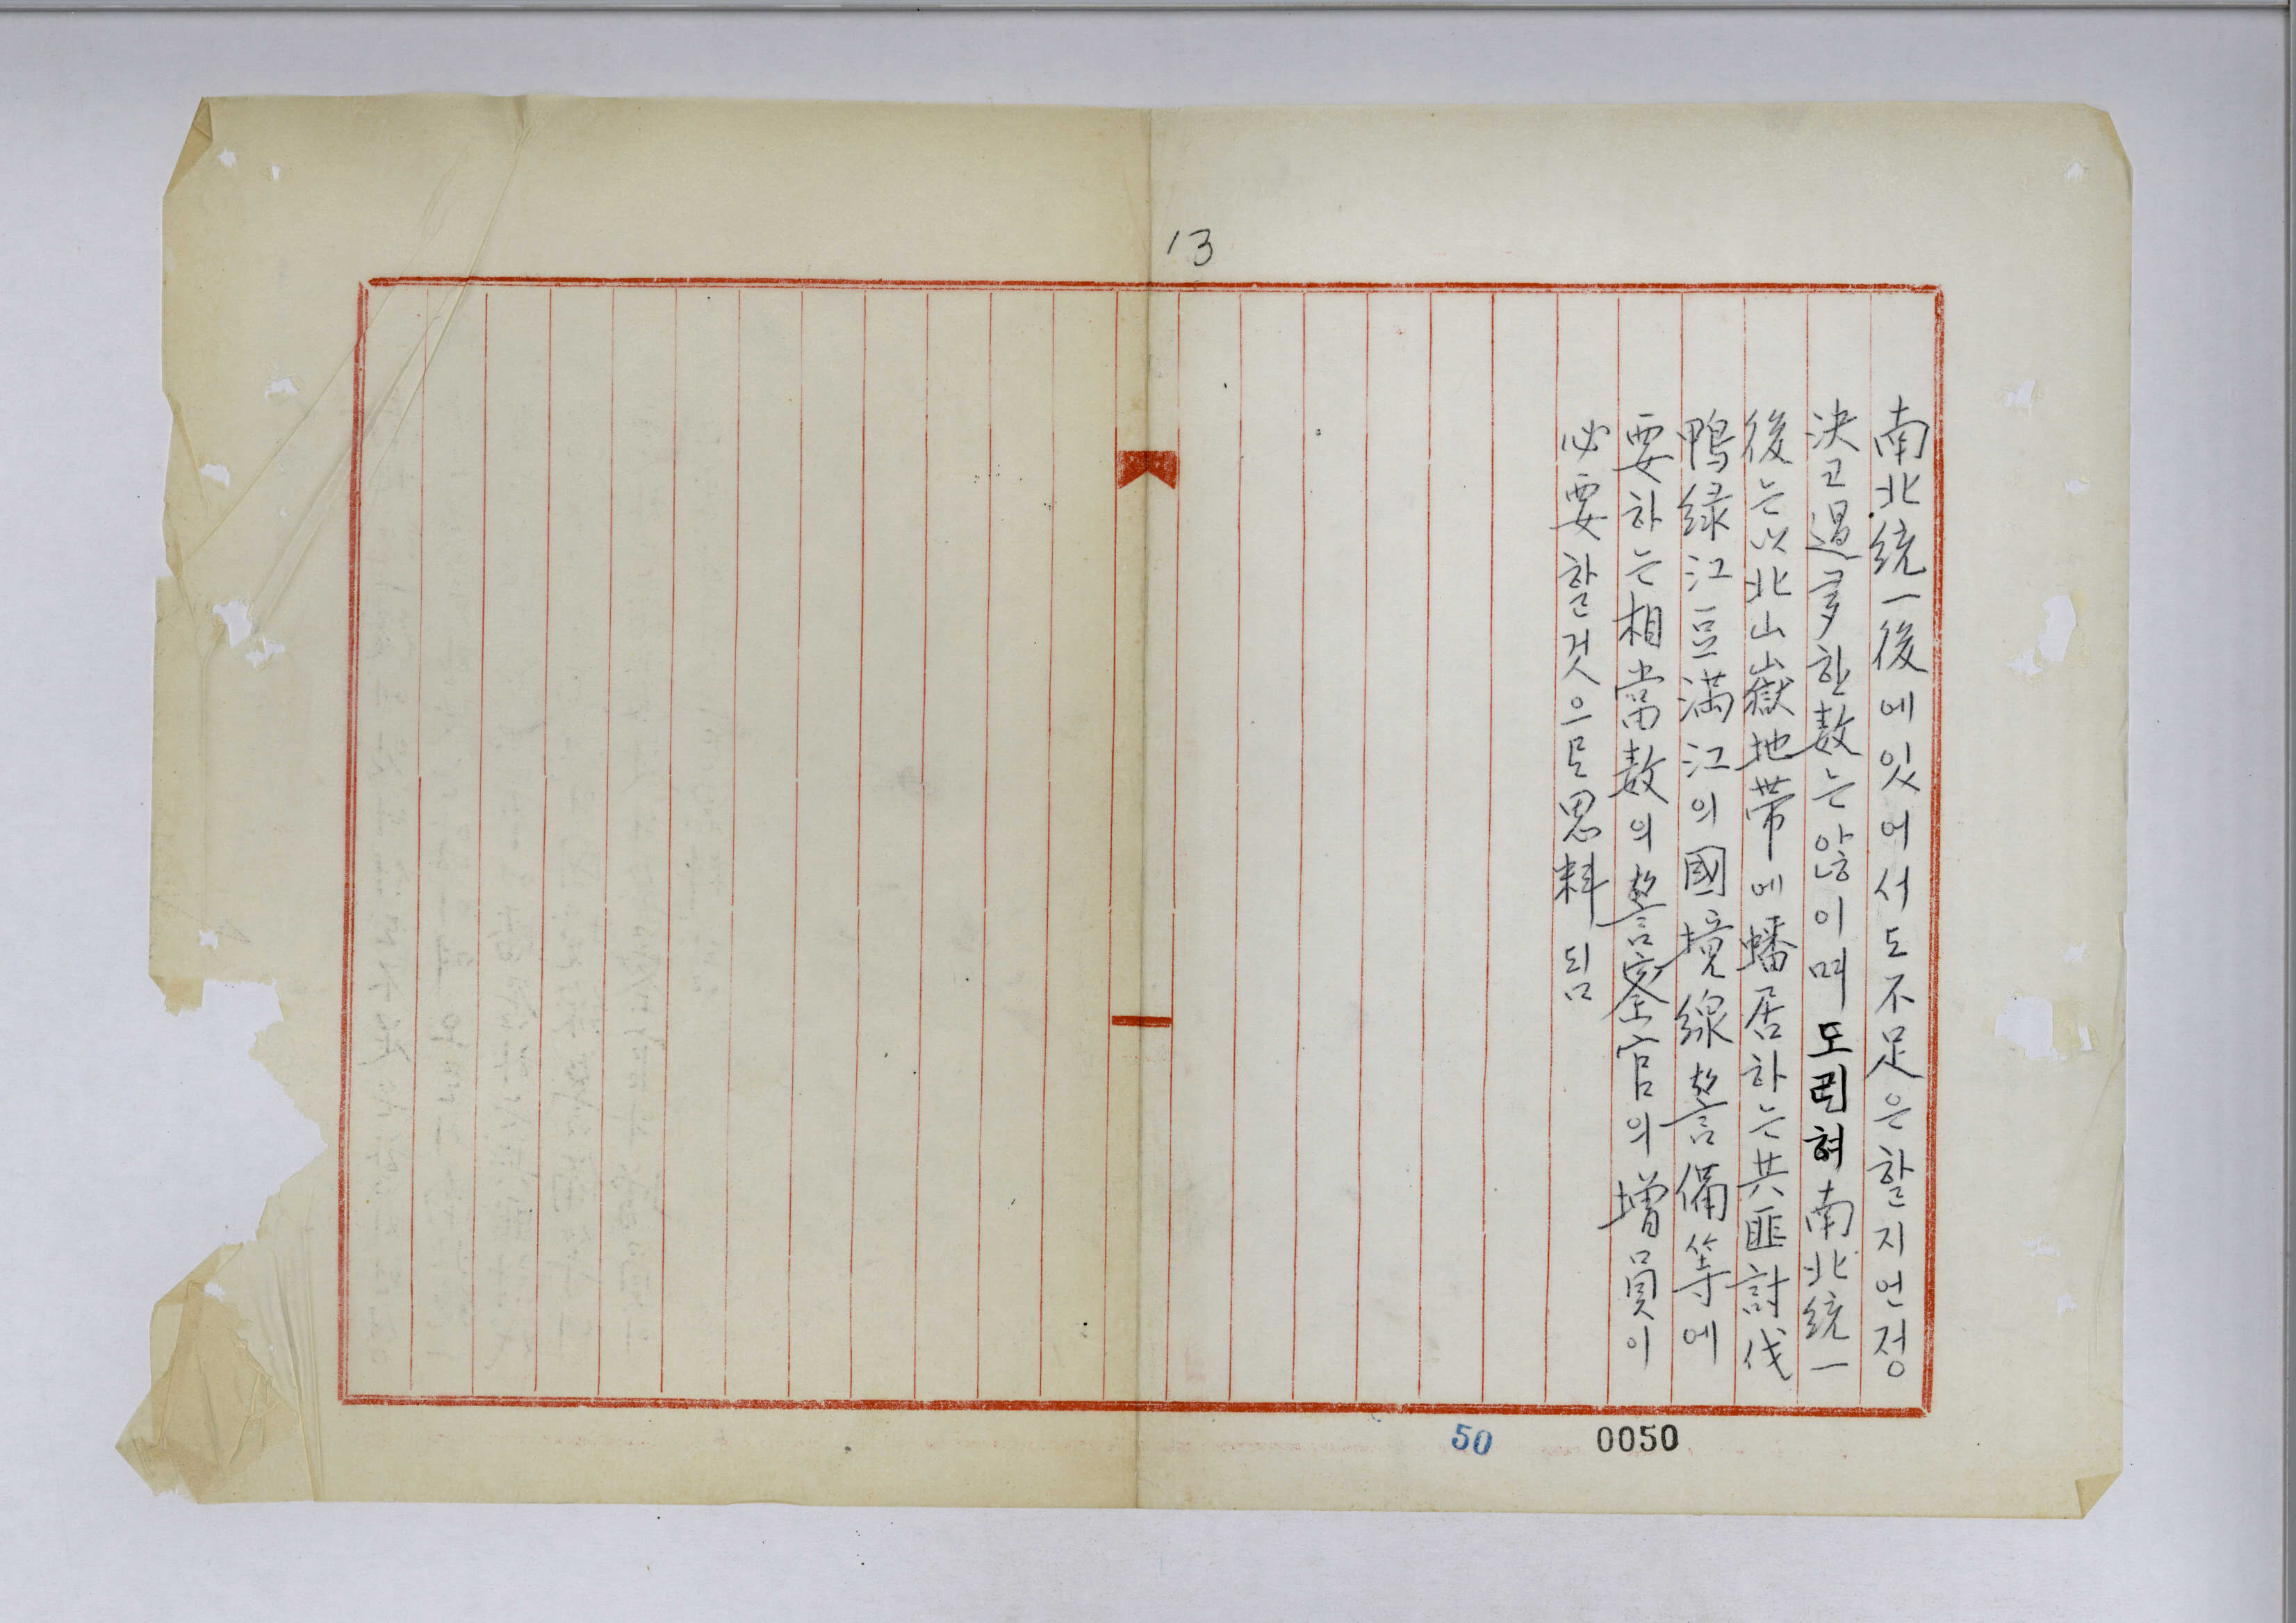 13
南北統一後에잇어서도不足은할지언정
決코過多한数는않이며도리혀南北統一
後는以北山嶽地帶에蟠居하는共匪討伐
鴨緑江豆満江의國境線警備等에
要하는相當数의警察官의增員이
必要할것으로思料됨
50
0050